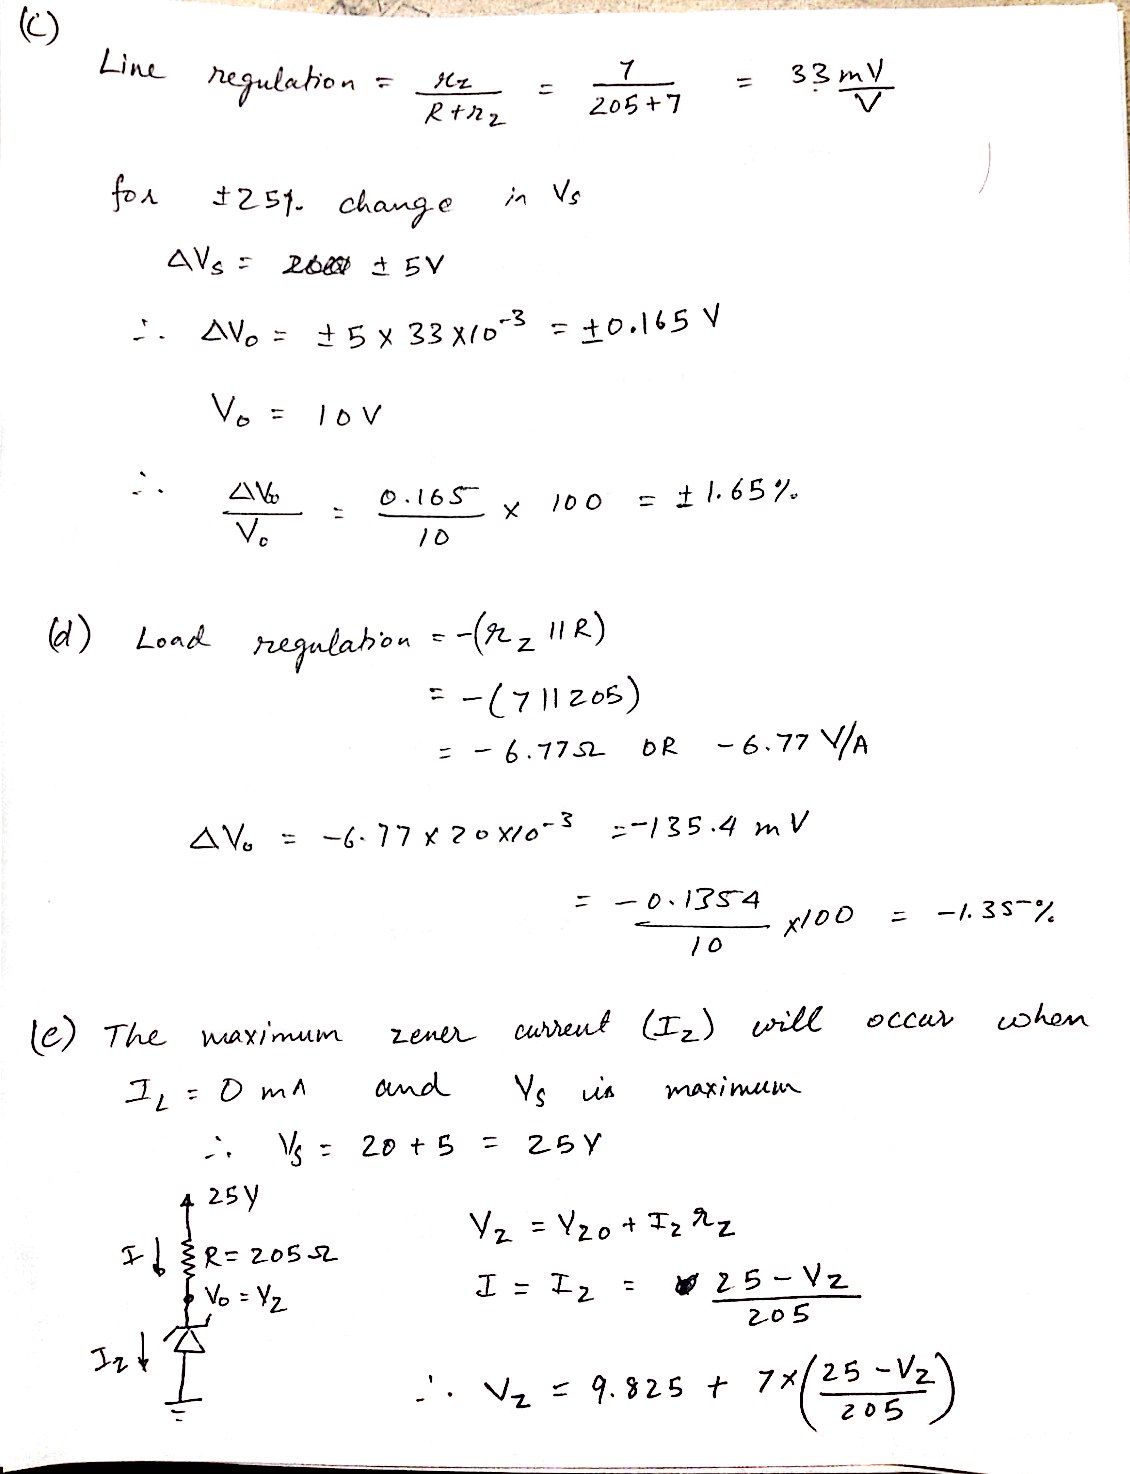 (c)
Line regulation = rz/(R+rz) = 7/(205+7) = 33 mV/V
for ±25% change in Vs
ΔVs = ± 5V
∴ ΔVo = ± 5 x 33 x10⁻³ = ±0.165 V
Vo = 10V
∴ ΔVo/Vo = 0.165/10 x 100 = ± 1.65%
(d) Load regulation = -(rz || R)
= -(7 || 205)
= - 6.77Ω OR - 6.77 V/A
ΔVo = -6.77 x 20 x10⁻³ = -135.4 mV
= -0.1354/10 x100 = -1.35%
(e) The maximum zener current (Iz) will occur when
IL = 0 mA and Vs is maximum
∴ Vs = 20 + 5 = 25V
25V
I R = 205Ω
Vo = Vz
Iz
Vz = Vzo + Iz rz
I = Iz = (25 - Vz)/205
∴ Vz = 9.825 + 7x((25 - Vz)/205)